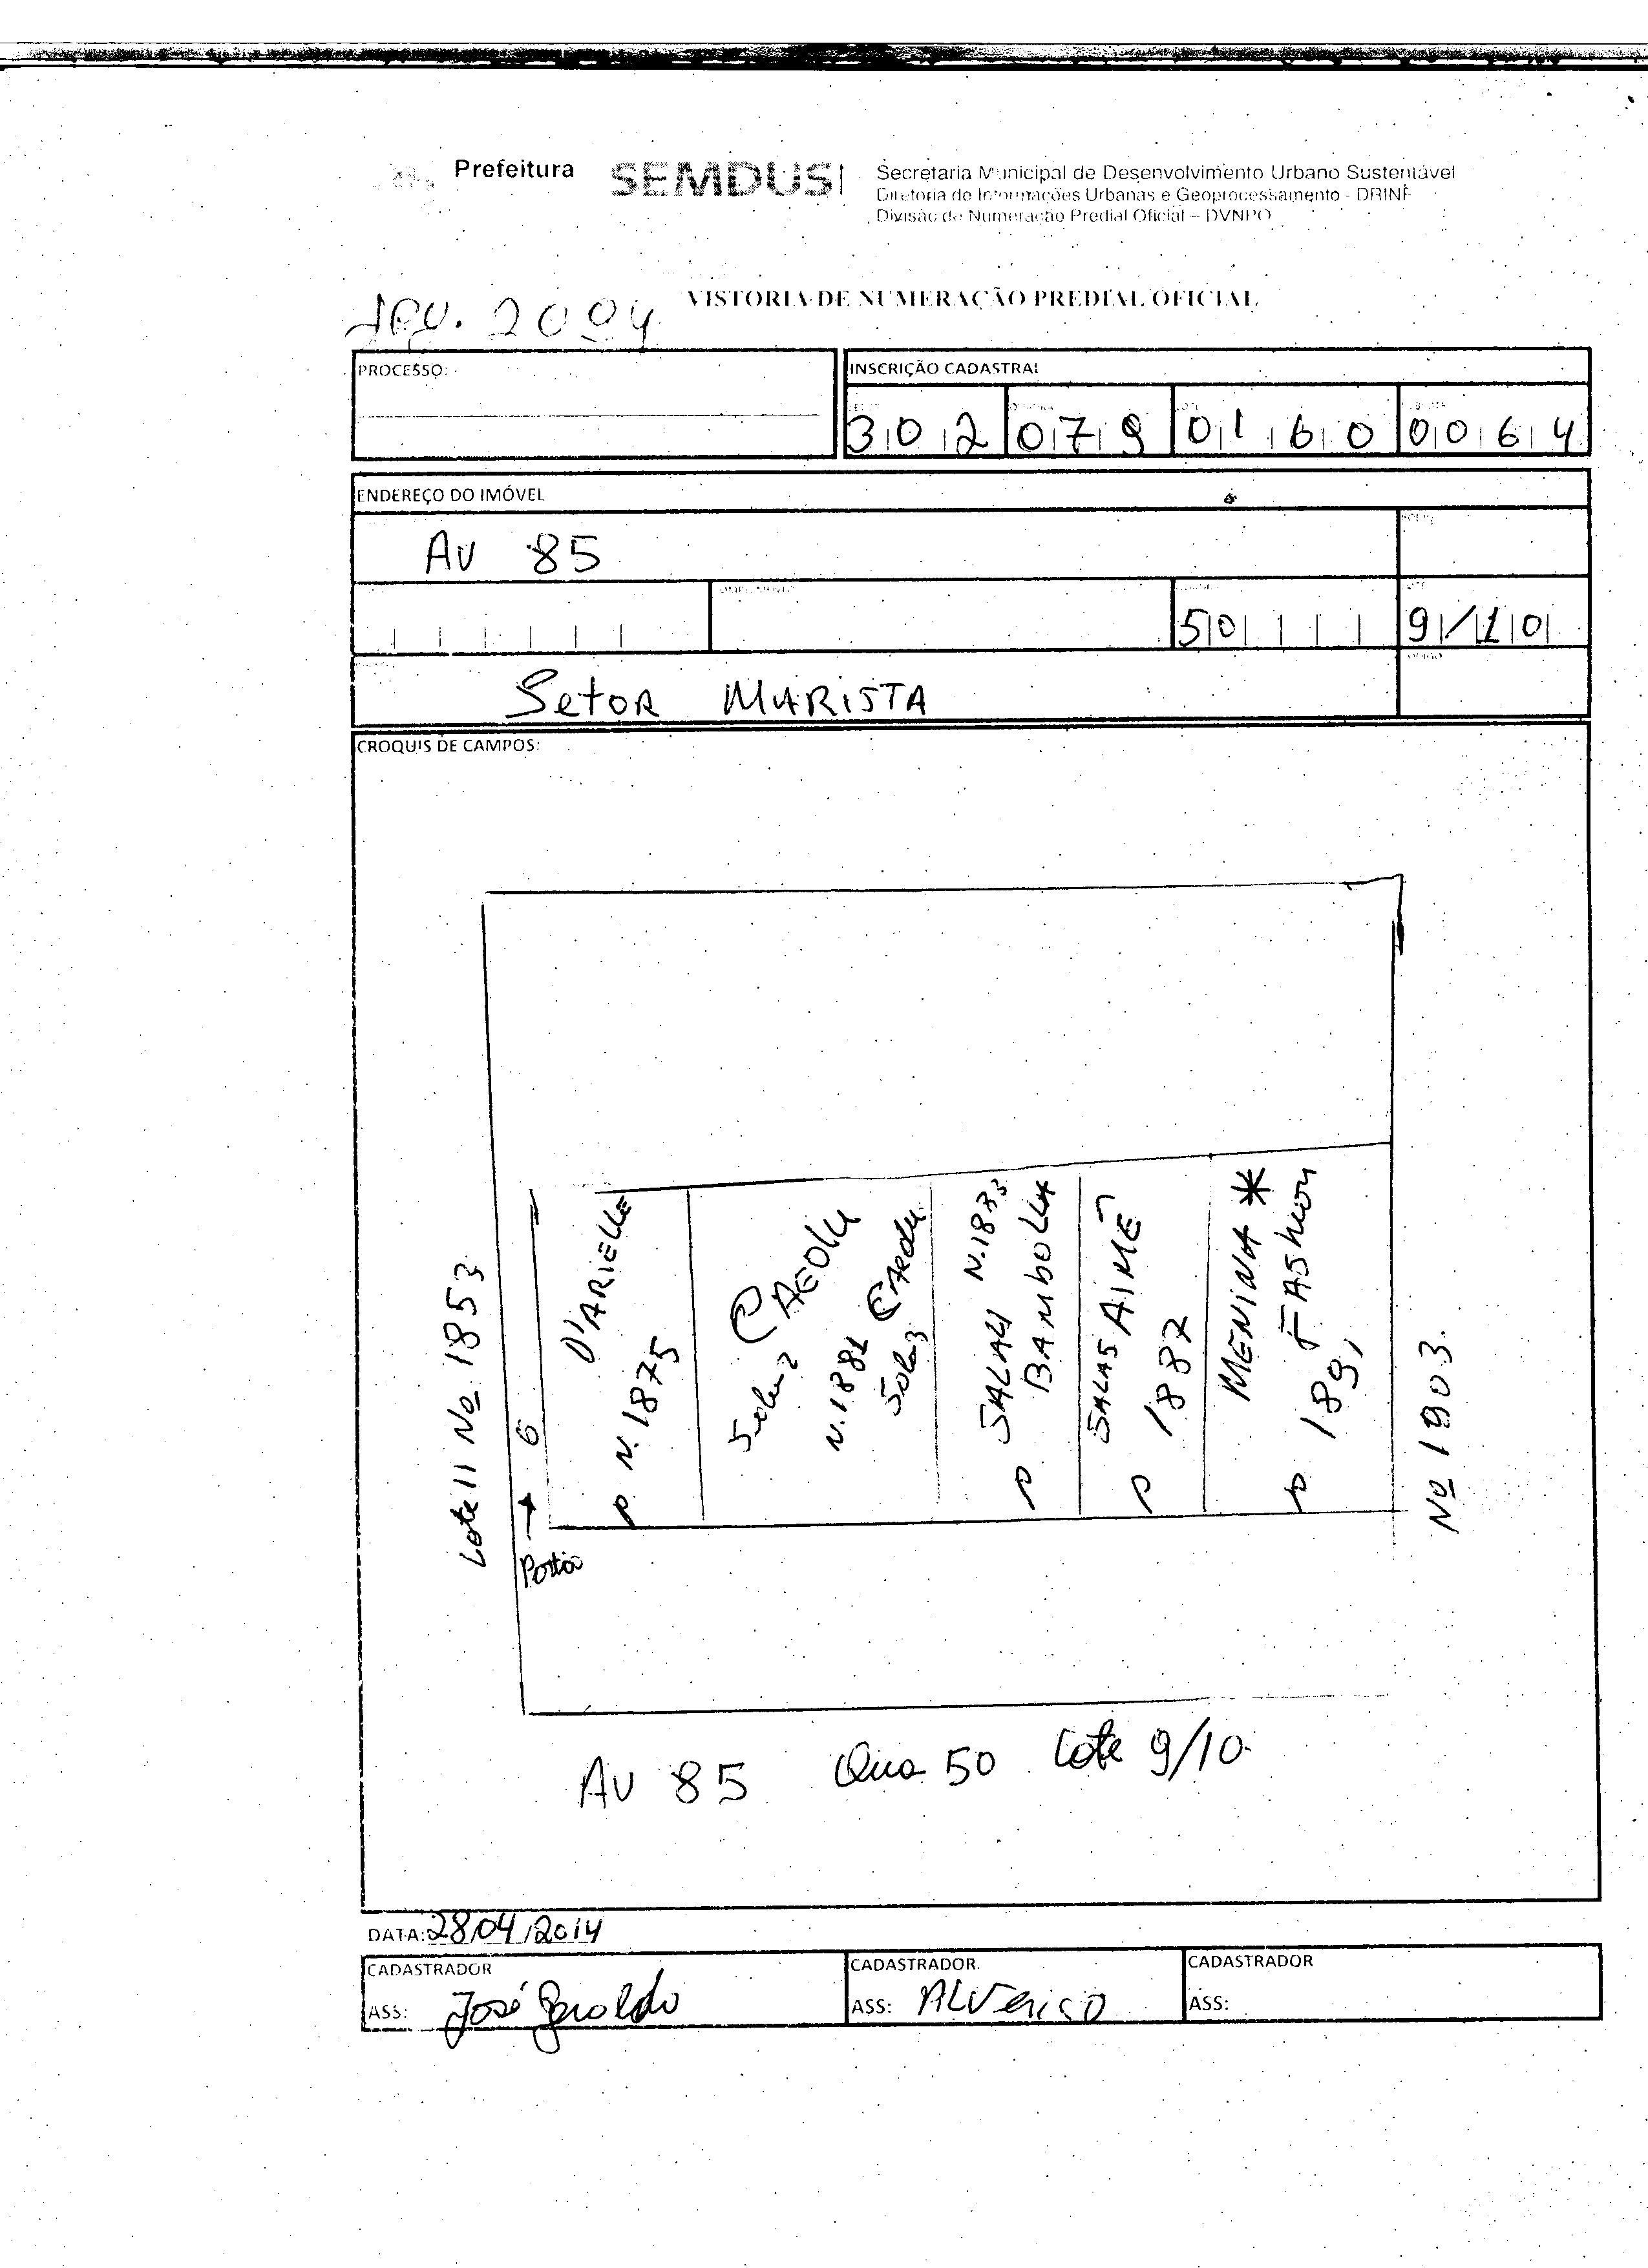 Prefeitura
SEMDUS
Secretaria Municipal de Desenvolvimento Urbano Sustentável
Diretoria de Informações Urbanas e Geoprocessamento - DRINF
Divisão de Numeração Predial Oficial – DVNPO
VISTORIA DE NUMERAÇÃO PREDIAL OFICIAL
2004
PROCESSO:
INSCRIÇÃO CADASTRAL
302 079 0160 0064
ENDEREÇO DO IMÓVEL
AV 85
50 9/10
Setor MARISTA
CROQUIS DE CAMPOS:
Lote 11 Nº 1853
6
Portão
D'ARIELLE
N. 1875
CAEDU
N. 1881
CAEDU
SALA4 N. 1883
BAMBOLLA
SALA5 AIMÊ
1887
MENINA *
FAShion
189
Nº 1903.
AV 85 Qua 50 Lote 9/10
DATA: 28/04/2014
CADASTRADOR
ASS: José Geraldo
CADASTRADOR.
ASS: ALVERICO
CADASTRADOR
ASS: